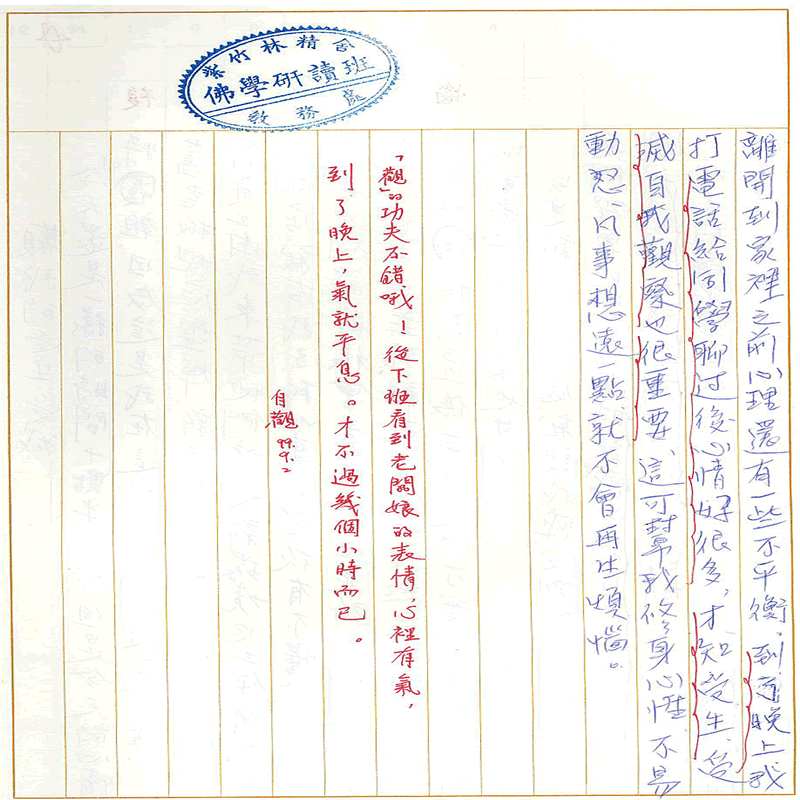 紫竹林精舍
佛學研讀班
教務處
離開到家裡之前心理還有一些不平衡,到了晚上我
打電話給同學聊过後心情好很多,才知受生、受
滅自我觀察也很重要、這可對幫我修身心性不易
動怒、凡事想遠一點就不會再生煩惱。
「觀」的功夫不錯哦!從下班看到老闆娘的表情,心裡有氣,
到了晚上,氣就平息。才不過幾個小時而已。
自觀 99.9.2